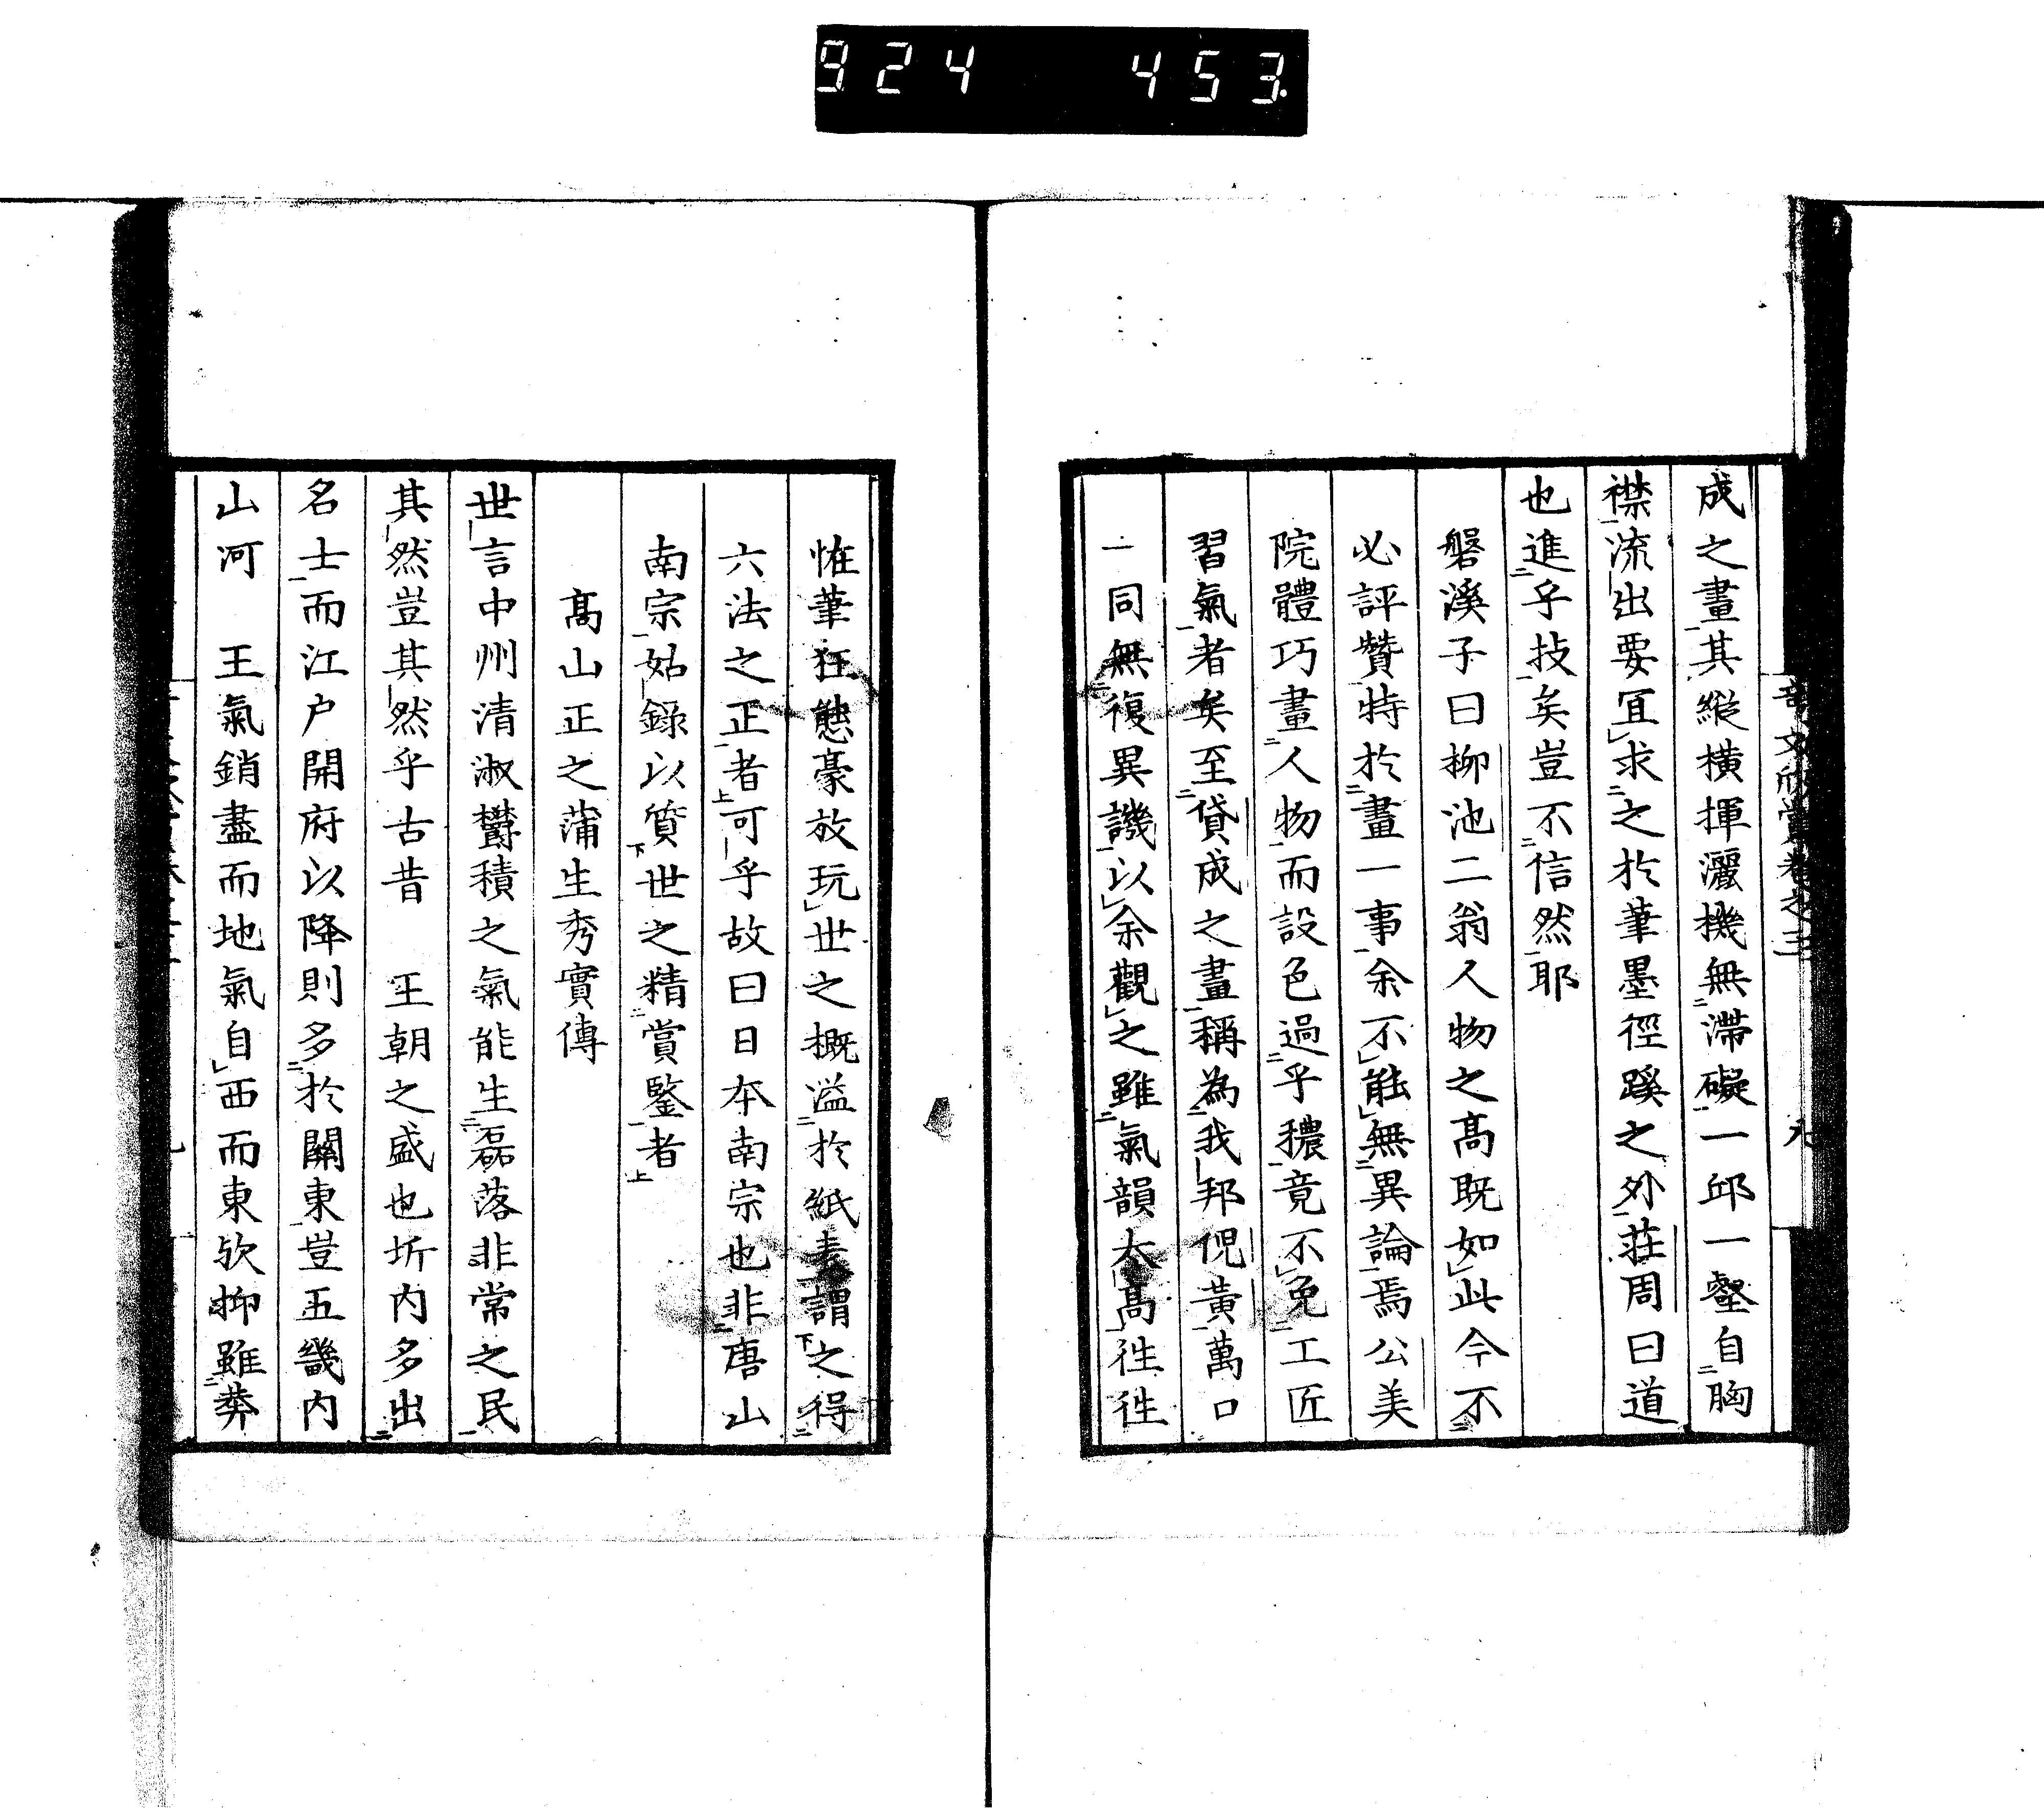 924 453
成之畫其縱橫揮灑機無滯礙一邱一壑自胸
襟流出要宜求之於筆墨徑蹊之外莊周曰道
也進乎技矣豈不信然耶
磐溪子曰柳池二翁人物之高既如此今不
必評贊特於畫一事余不能無異論焉公美
院體巧畫人物而設色過乎穠竟不免工匠
習氣者矣至貸成之畫稱為我邦倪黃萬口
一同無復異譏以余觀之雖氣韻太高徃徃
恠筆狂態豪放玩世之概溢於紙表謂之得
六法之正者可乎故曰日本南宗也非唐山
南宗姑錄以質世之精賞鑒者
高山正之蒲生秀實傳
世言中州清淑欝積之氣能生磊落非常之民
其然豈其然乎古昔 王朝之盛也圻内多出
名士而江户開府以降則多於關東豈五畿内
山河 王氣銷盡而地氣自西而東欤抑雖莽